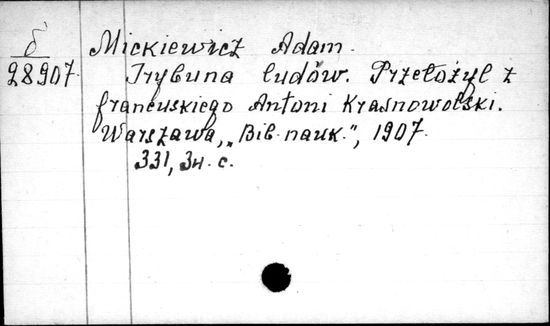 б
28907
Mickiewicz Adam.
Trybuna ludów. Przełożył z
francuskiego Antoni Krasnowolski.
Warszawa, „Bib. nauk.", 1907.
331, 3н. с.